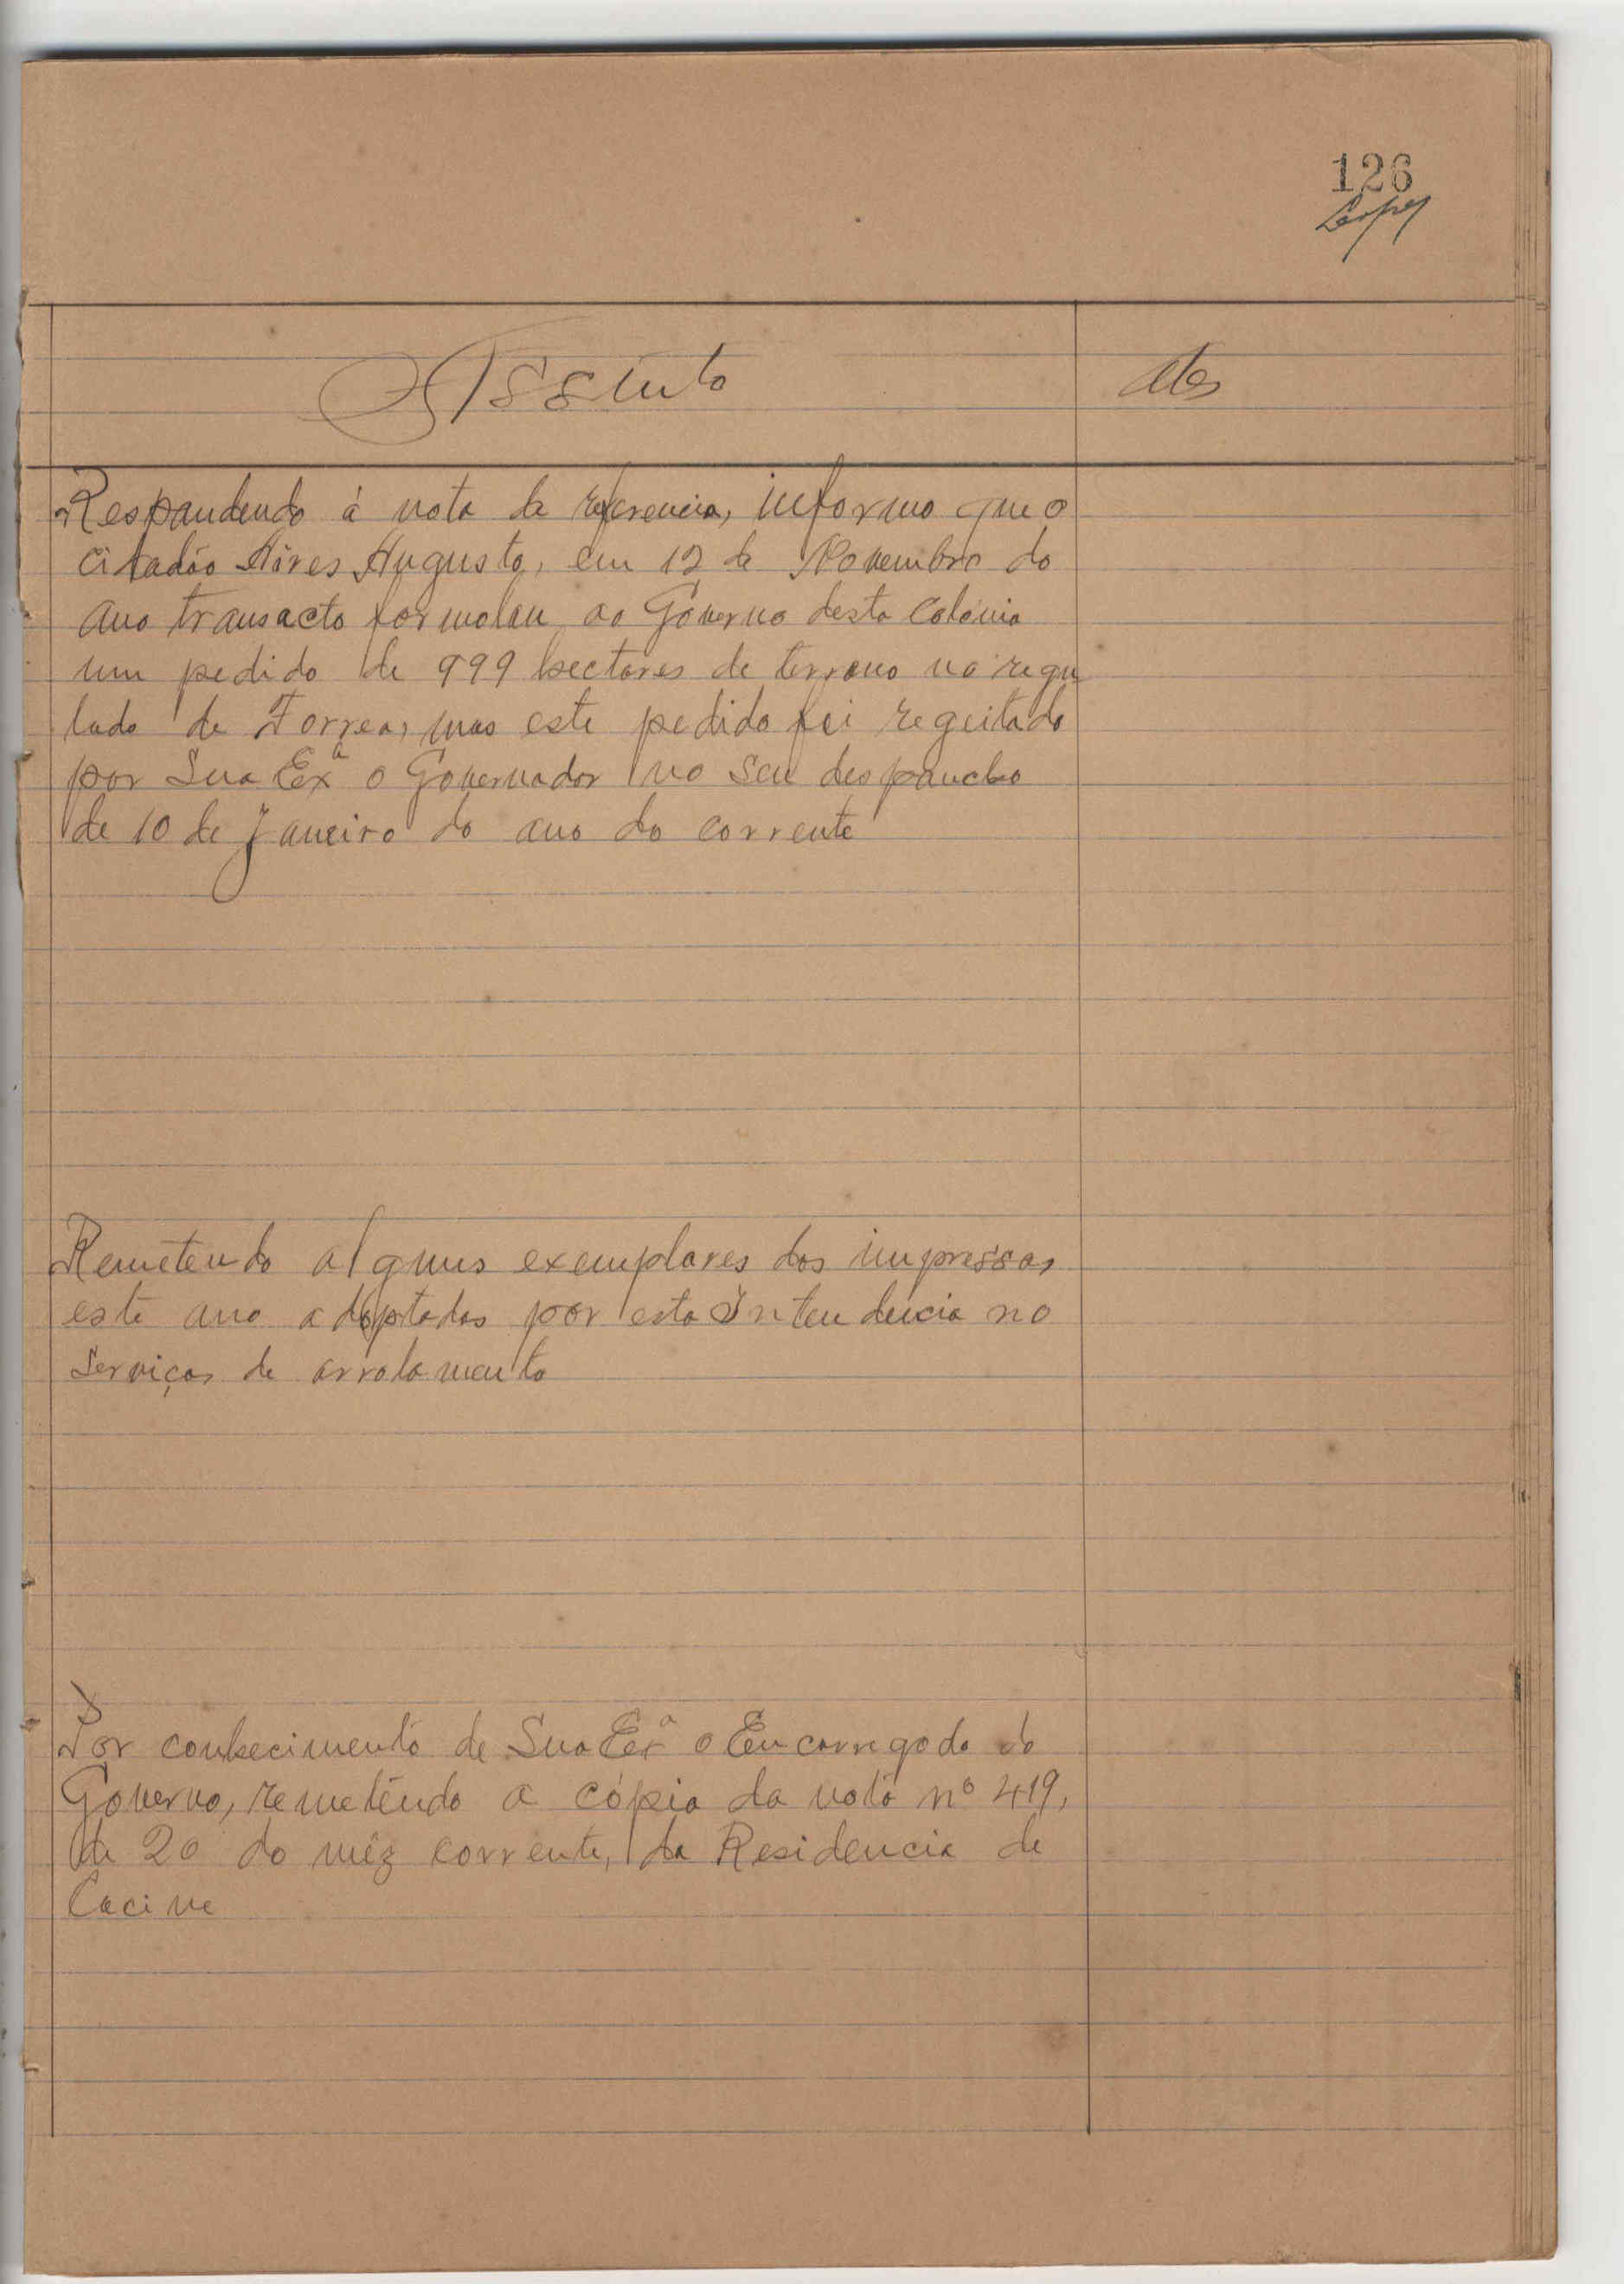 126
Lopes
Assunto
Obs
Respondendo á nota de referencia, informo que o
cidadão Aires Augusto, em 12 de Novembro do
ano transacto formolou ao Governo desta Colónia
um pedido de 999 hectares de terreno no regu
lado de Forrea, mas este pedido foi regeitado
por Sua Exª o Governador no seu despancho
de 10 de Janeiro do ano do corrente
Remetendo alguns exemplares dos impressos
este ano adoptados por esta Intendencia no
serviços de arrolamento
Por conhecimento de Sua Exª o Encarregado do
Governo, remetendo a cópia da nota nº 419,
de 20 do mêz corrente, da Residencia de
Cacine